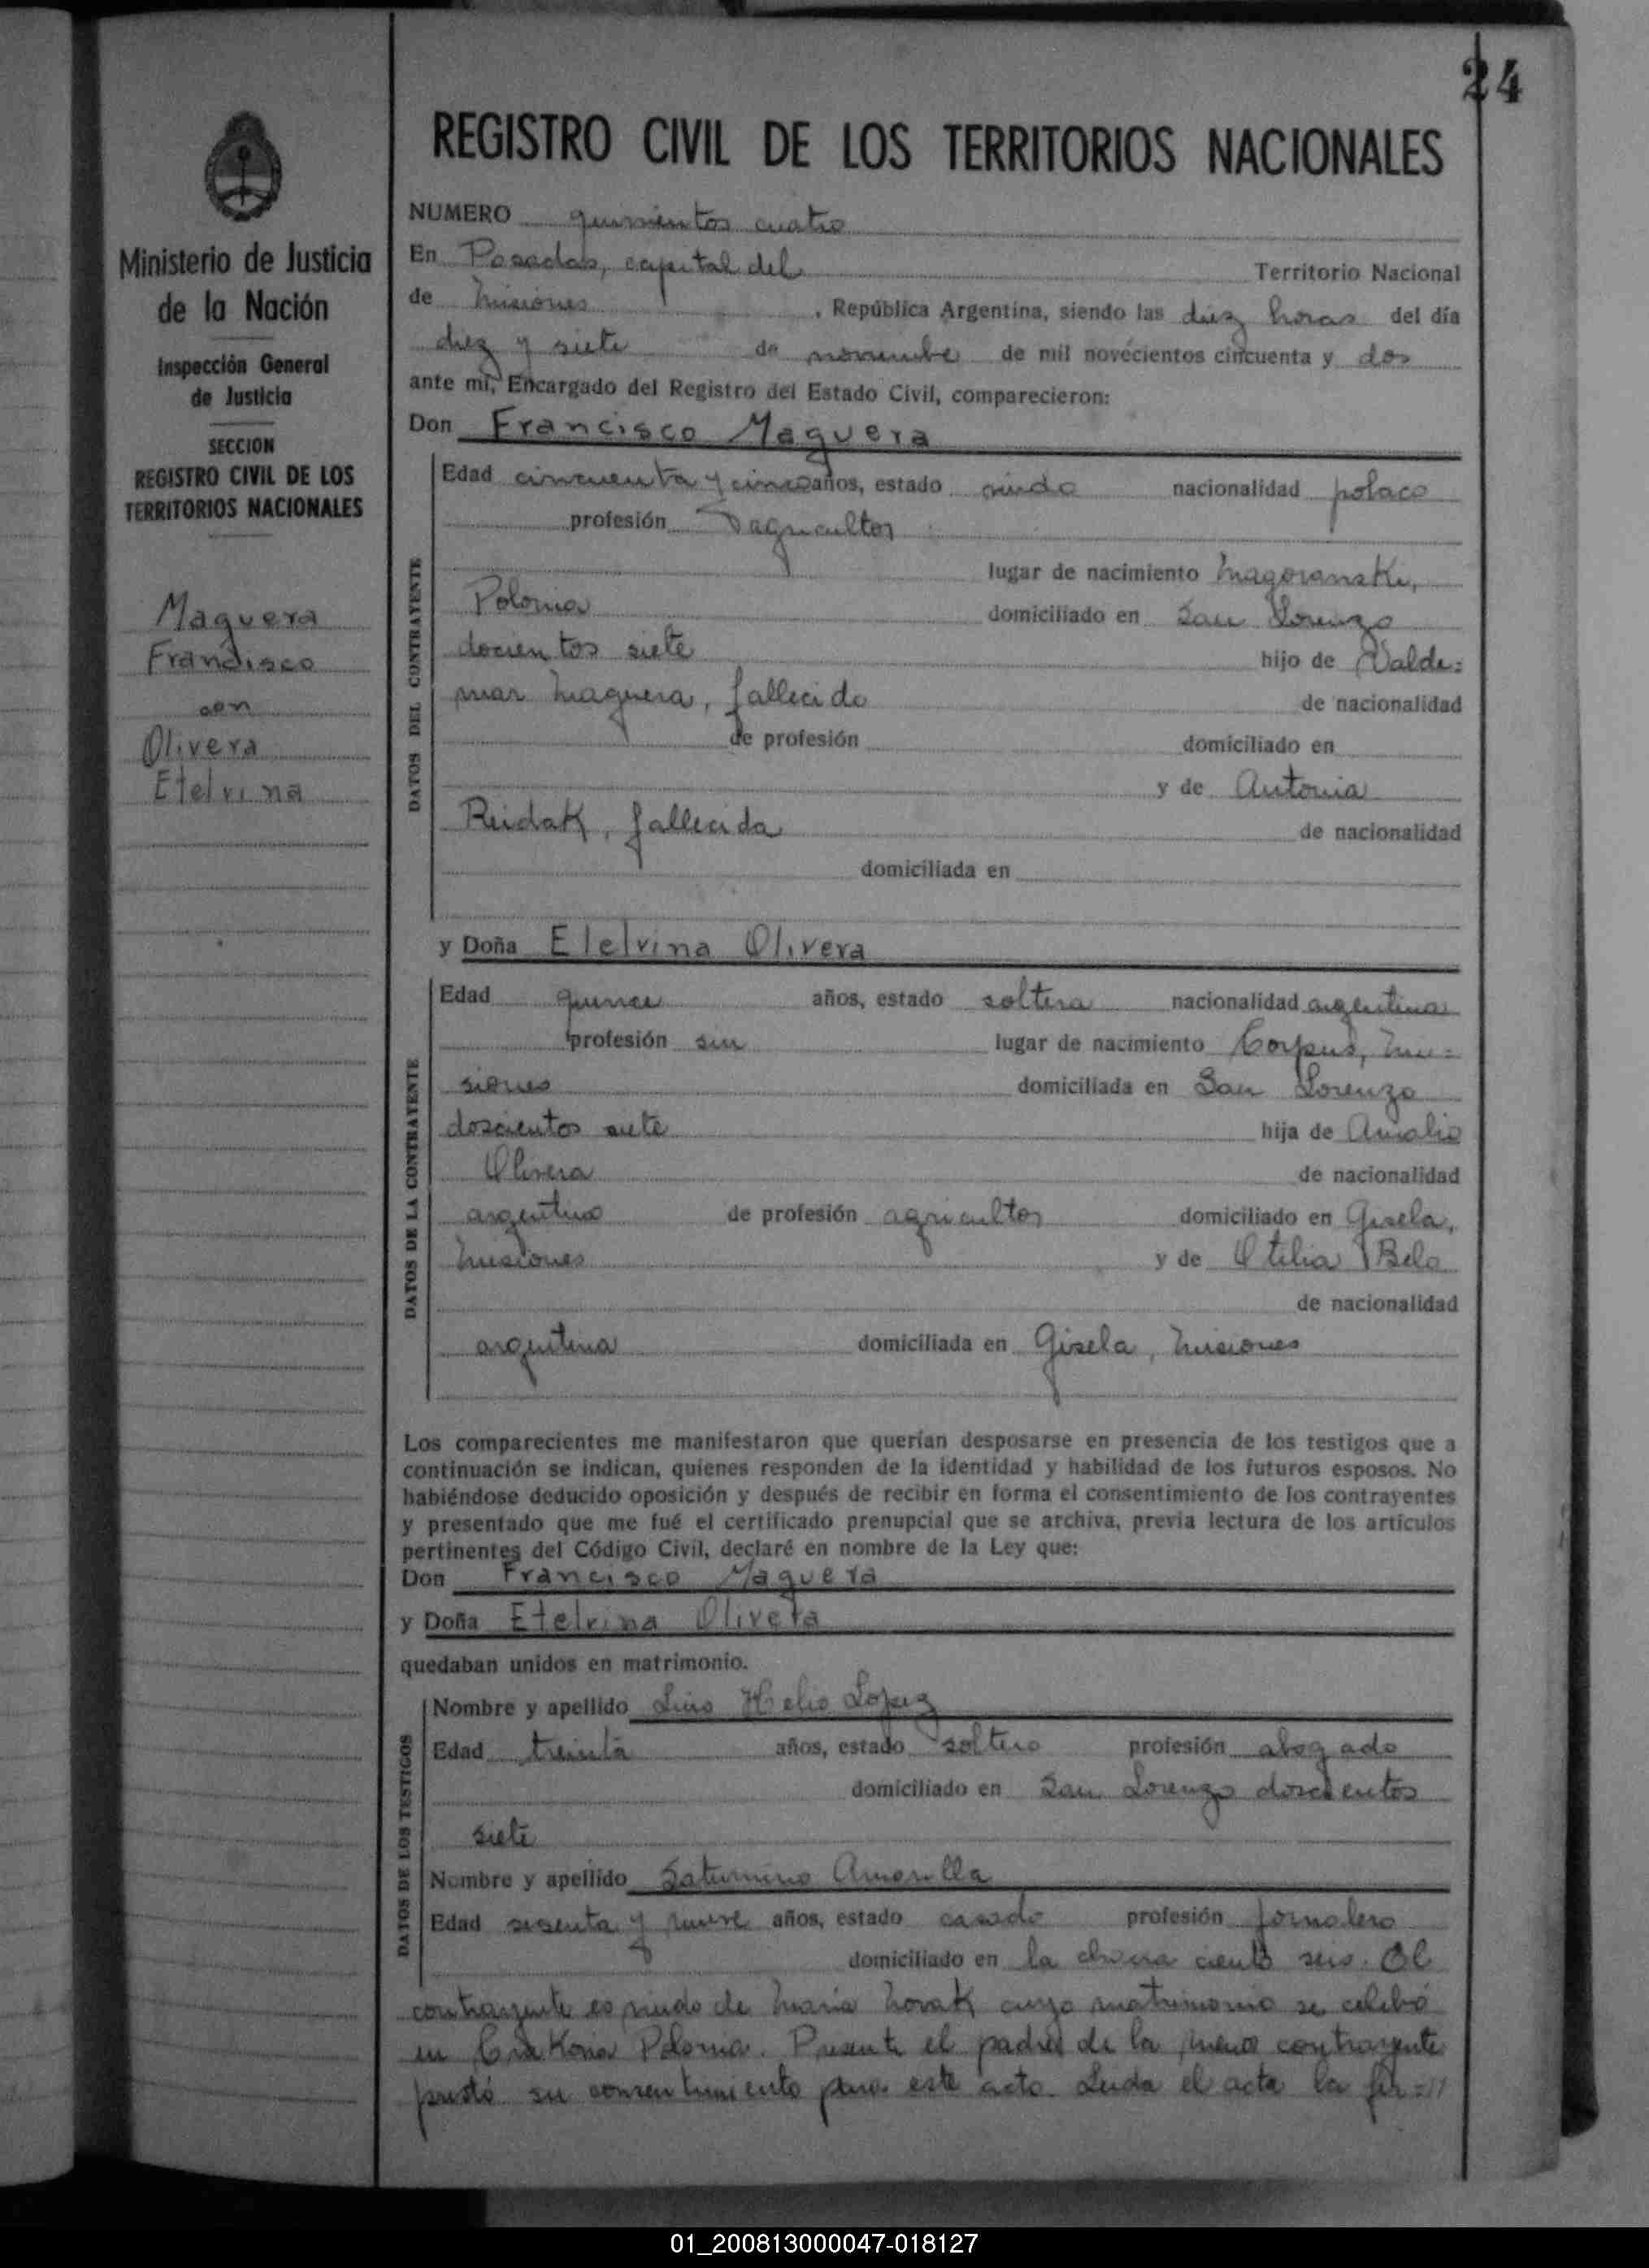 24
REGISTRO CIVIL DE LOS TERRITORIOS NACIONALES
Ministerio de Justicia
de la Nación
Inspección General
de Justicia
SECCION
REGISTRO CIVIL DE LOS
TERRITORIOS NACIONALES
Maguera
Francisco
con
Olivera
Etelvina
NUMERO quinientos cuatro
En Posadas, capital del Territorio Nacional
de Misiones, República Argentina, siendo las diez horas del día
diez y siete de noviembre de mil novecientos cincuenta y dos
ante mí, Encargado del Registro del Estado Civil, comparecieron:
Don Francisco Maguera
DATOS DEL CONTRAYENTE
Edad cincuenta y cinco años, estado viudo nacionalidad polaco
profesión agricultor
lugar de nacimiento
Polonia domiciliado en San Lorenzo
docientos siete hijo de Valde=
mar Maguera, fallecido de nacionalidad
de profesión domiciliado en
y de Antonia
Reidak, fallecida de nacionalidad
domiciliada en
y Doña Etelvina Olivera
DATOS DE LA CONTRAYENTE
Edad quince años, estado soltera nacionalidad argentina
profesión sin lugar de nacimiento Corpus, Mi=
siones domiciliada en San Lorenzo
doscientos siete hija de Amalio
Olivera de nacionalidad
argentino de profesión agricultor domiciliado en Gisela,
Misiones y de Otilia Belo
de nacionalidad
argentina domiciliada en Gisela, Misiones
Los comparecientes me manifestaron que querían desposarse en presencia de los testigos que a
continuación se indican, quienes responden de la identidad y habilidad de los futuros esposos. No
habiéndose deducido oposición y después de recibir en forma el consentimiento de los contrayentes
y presentado que me fué el certificado prenupcial que se archiva, previa lectura de los artículos
pertinentes del Código Civil, declaré en nombre de la Ley que:
Don Francisco Maguera
y Doña Etelvina Olivera
quedaban unidos en matrimonio.
DATOS DE LOS TESTIGOS
Nombre y apellido Luis Helio Lopez
Edad treinta años, estado soltero profesión abogado
domiciliado en San Lorenzo doscientos
siete
Nombre y apellido Saturnino Amarilla
Edad sesenta y nueve años, estado casado profesión jornalero
domiciliado en la chacra ciento seis. El
contrayente es viudo de Maria Novak cuyo matrimonio se celebró
en Crakovia Polonia. Presente el padre de la menor contrayente
prestó su consentimiento para este acto. Leida el acta la fir=//
01_200813000047-018127